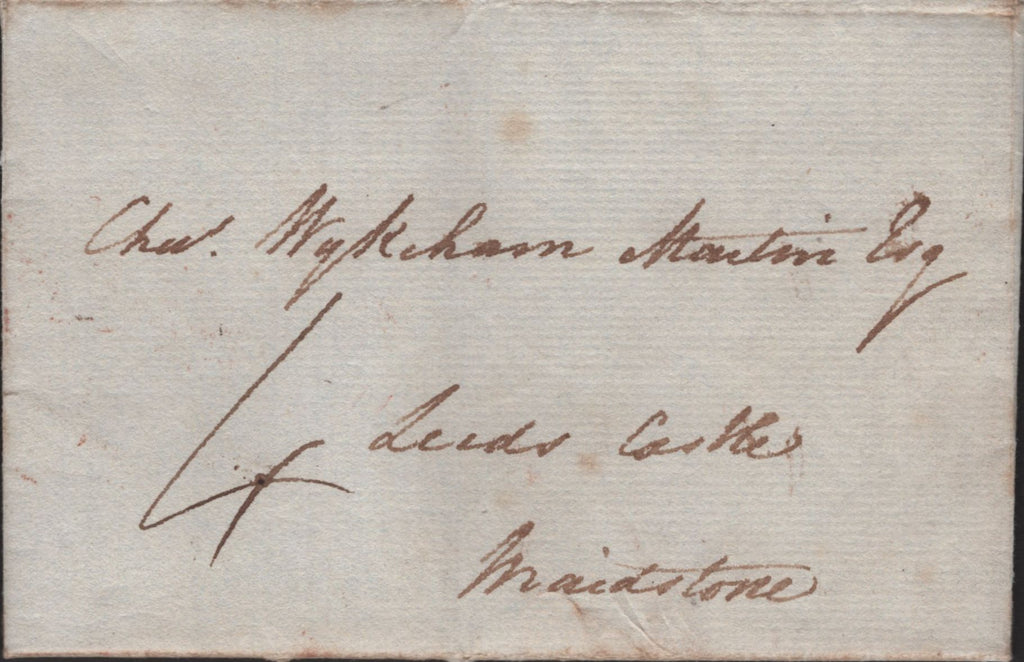 Chas. Wykeham Martin Esq
4
Leeds Castle
Maidstone